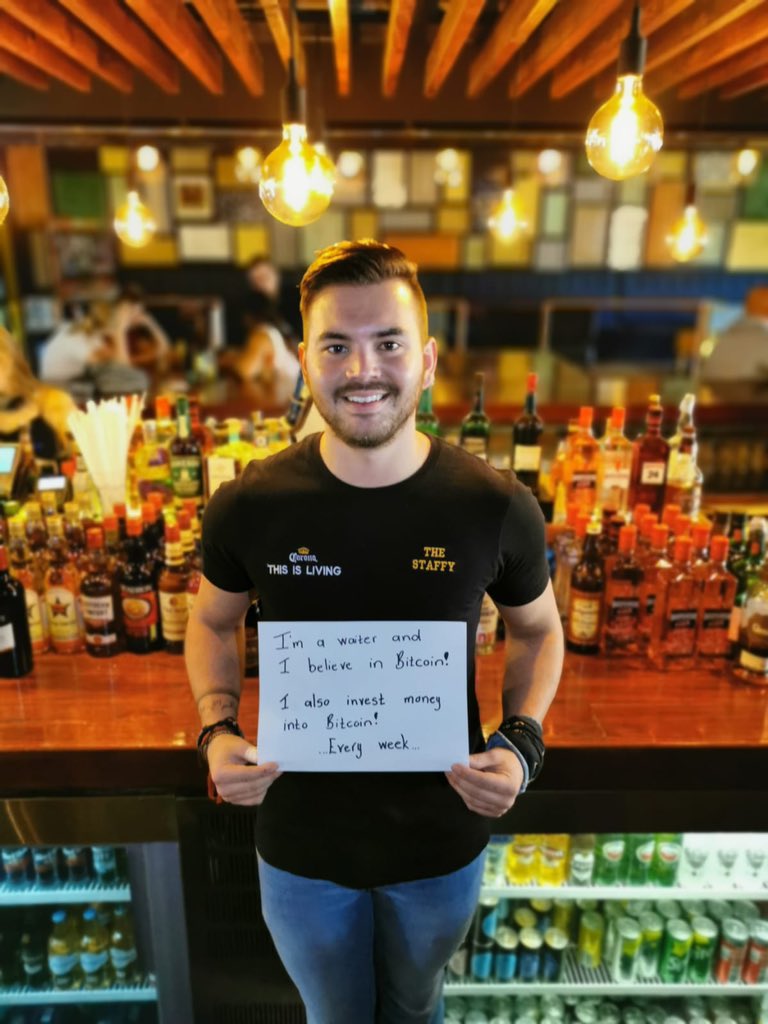 Corona
THIS IS LIVING
THE
STAFFY
I'm a waiter and
I believe in Bitcoin!
I also invest money
into Bitcoin!
...Every week...